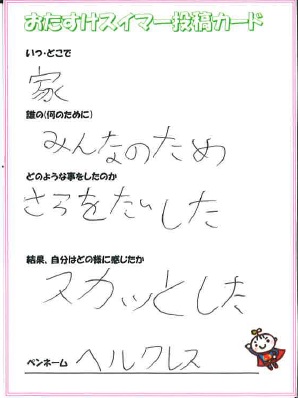 おたすけスイマー投稿カード
いつ・どこで
家
誰の(何のために)
みんなのため
どのような事をしたのか
した
結果、自分はどの様に感じたか
スカッとした
ペンネーム ヘルクレス